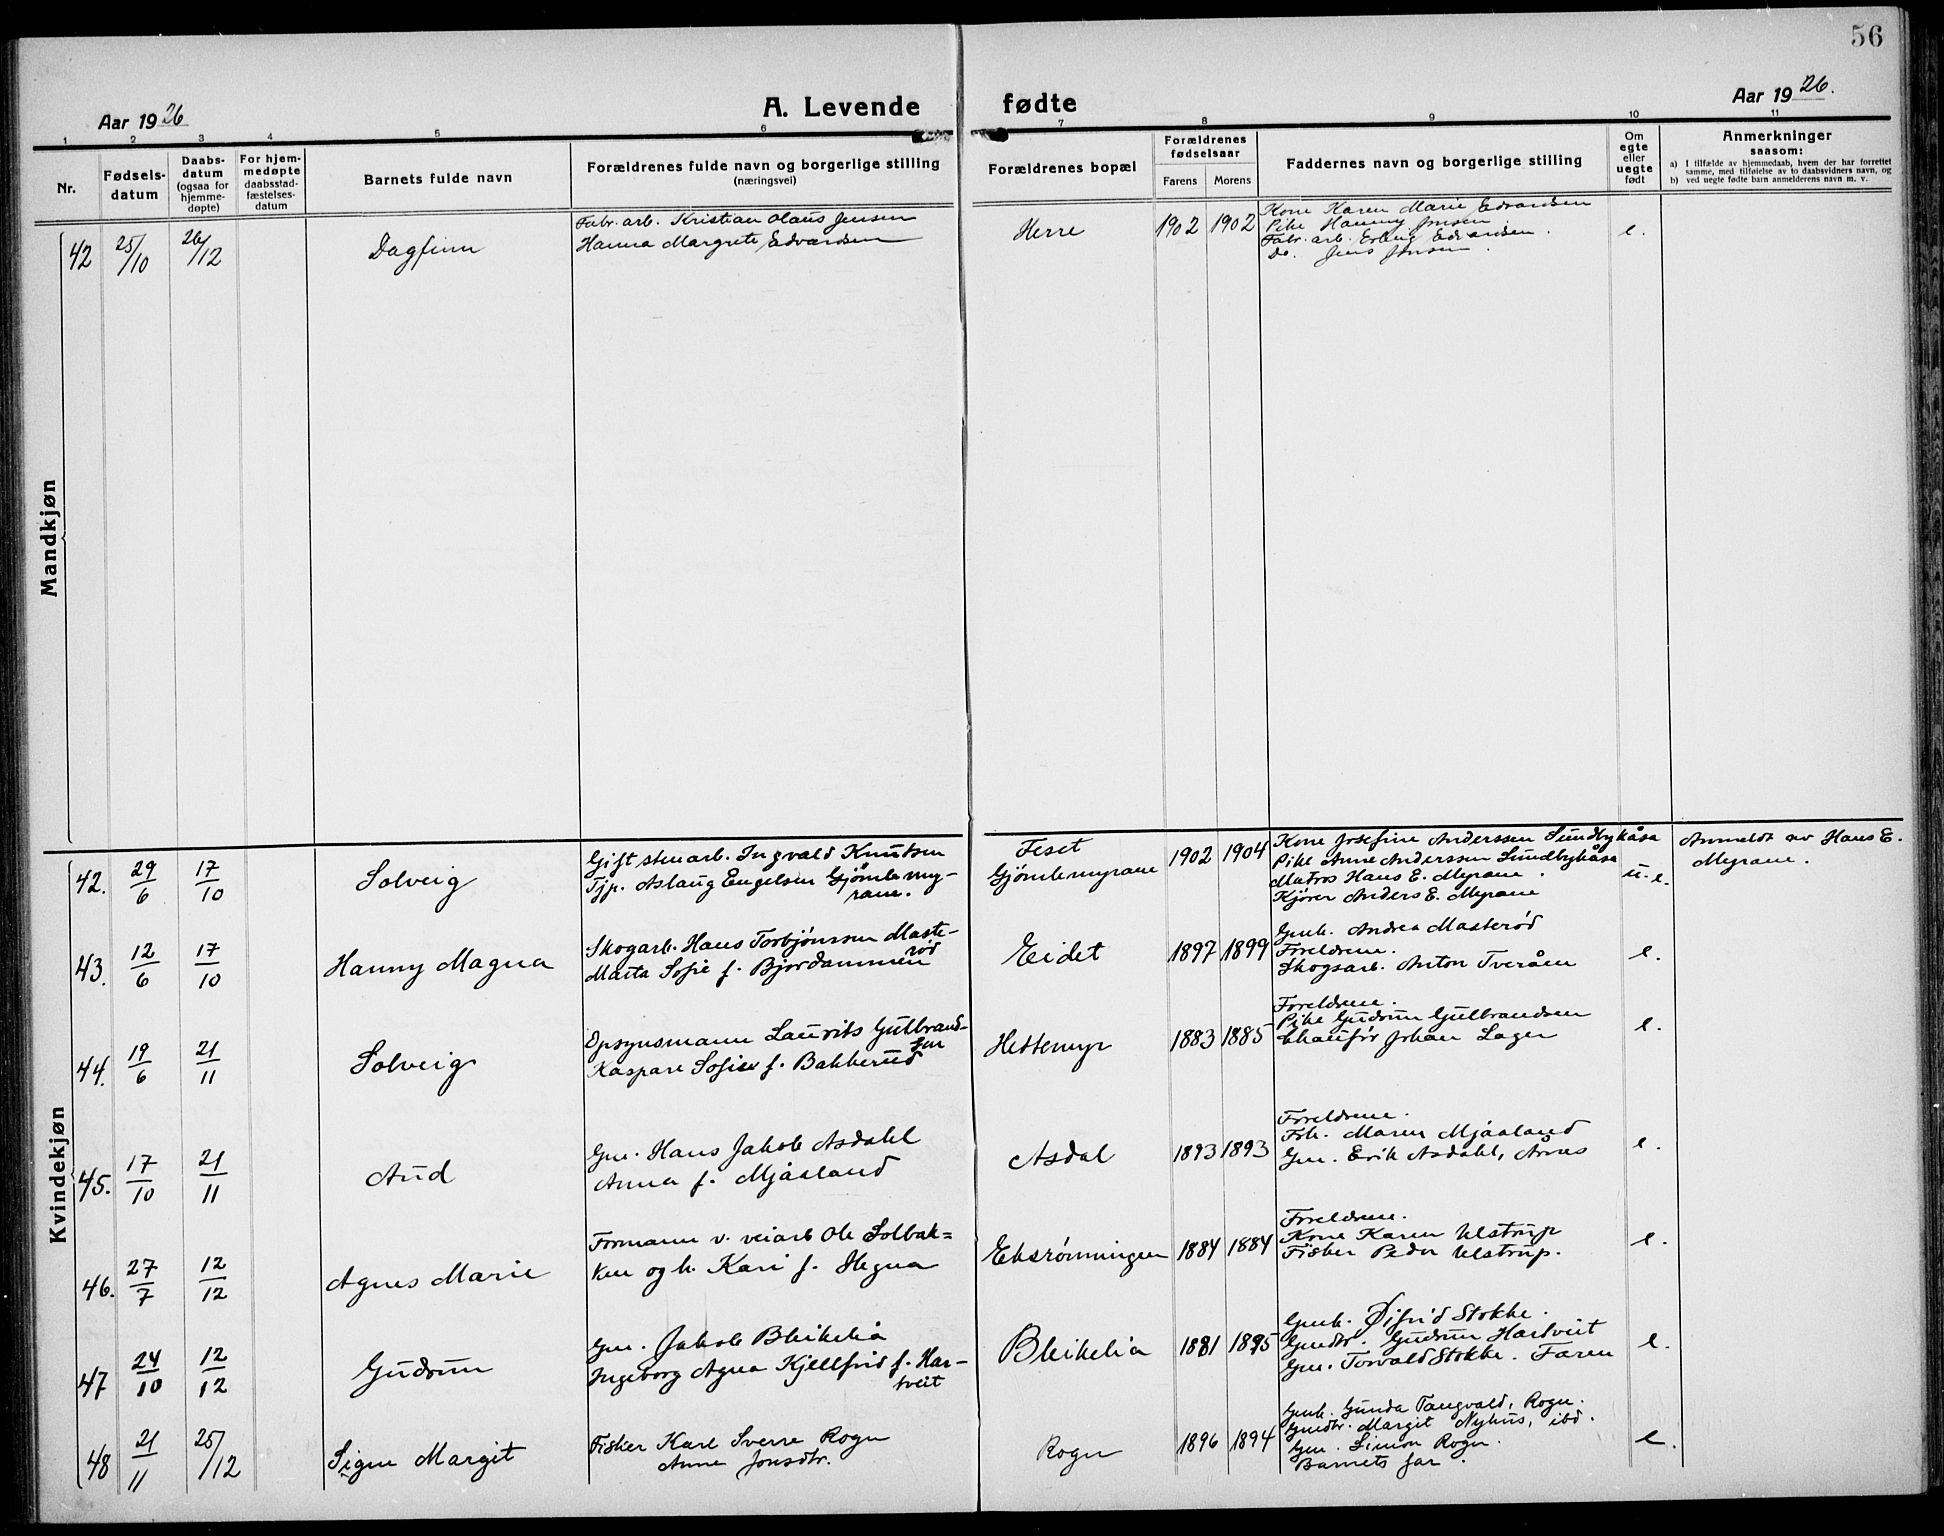 56
Aar 1926
A. Levende fødte
Aar 1926.
1 2 3 4 5 6 7 8 9 10 11
Nr.
Fødsels-
datum
Daabs-
datum
(ogsaa for
hjemme-
døpte)
For hjem-
medøpte
daabsstad-
fæstelses-
datum
Barnets fulde navn
Forældrenes fulde navn og borgerlige stilling
(næringsvei)
Forældrenes bopæl
Forældrenes
fødselsaar
Farens Morens
Faddernes navn og borgerlige stilling
Om
egte
eller
uegte
født
Anmerkninger
saasom:
a) I tilfælde av hjemmedaab, hvem der har forrettet
samme, med tilføielse av to daabsvidners navn, og
b) ved uegte fødte barn anmelderens navn m. v.
Mandkjøn
42 25/10 26/12
Dagfinn
Fabr. arb. Kristian Olaus Jensen
Hanna Margrete Edvardsen
Herre
1902 1902
Kone Karen Marie Edvardsen
Pike Hanny Jensen
Fabr. arb. Erling Edvardsen.
Do. Jens Jensen.
e.
Kvindekjøn
42. 29/6 17/10
Solveig
Gift stenarb. Ingvald Knudsen
Tjp. Aslaug Engelsen Gjømlemy-
rane.
Feset
Gjømlemyrane
1902 1904
Kone Josefine Anderssen Sundbykåsa
Pike Anne Anderssen Sundbykåsa
Matros Hans E. Myrane.
Kjører Anders E. Myrane
u. e.
Anmeldt av Hans E.
Myrane.
43. 12/6 17/10
Hanny Magna
Skogarb. Hans Torbjønssen Maste-
rød
Marta Sofie f. Bjordammen
Eidet
1897 1899
Gmk. Andrea Masterød
Foreldrene.
Skogsarb. Anton Tveråen
e.
44. 19/6 21/11
Solveig
Opsynsmann Laurits Gulbrand-
sen
Kaspara Sofie f. Bakkerud
Hestemyr
1883 1885
Foreldrene.
Pike Gudrun Gulbrandsen
Chaufør Johan Lager
e.
45. 17/10 21/11
Aud
Gm. Hans Jakob Asdahl
Anna f. Mjåsland
Asdal
1893 1893
Foreldrene.
Frk. Maren Mjåsland
Gm. Erik Asdahl, Årnes
e.
46. 27/7 12/12
Agnes Marie
Formann v. veiarb Ole Solbak=
ken og h. Kari f. Hegna
Eksrønningen
1884 1884
Foreldrene.
Kone Karen Ulstrup
Fisker Peder Ulstrup.
e.
47 24/10 12/12
Gudrun
Gm. Jakob Bleikelia
Ingeborg Agna Kjellfrid f. Har-
tveit
Bleikelia
1881 1895
Gmk. Øifrid Stokke.
Gmdtr. Gudrun Hartveit
Gm. Torvald Stokke. Faren
e.
48 21/11 25/12
Signe Margit
Fisker Karl Sverre Rogn
Anne Jonsdtr.
Rogn
1896 1894
Gmk. Gunda Tangvald, Rogn.
Gmdtr. Margit Nyhus, ibd.
Gm. Simon Rogn.
Barnets far.
e.